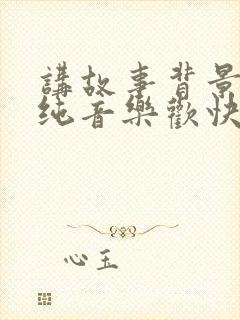 講故事背景
纯音樂歡快
心玉